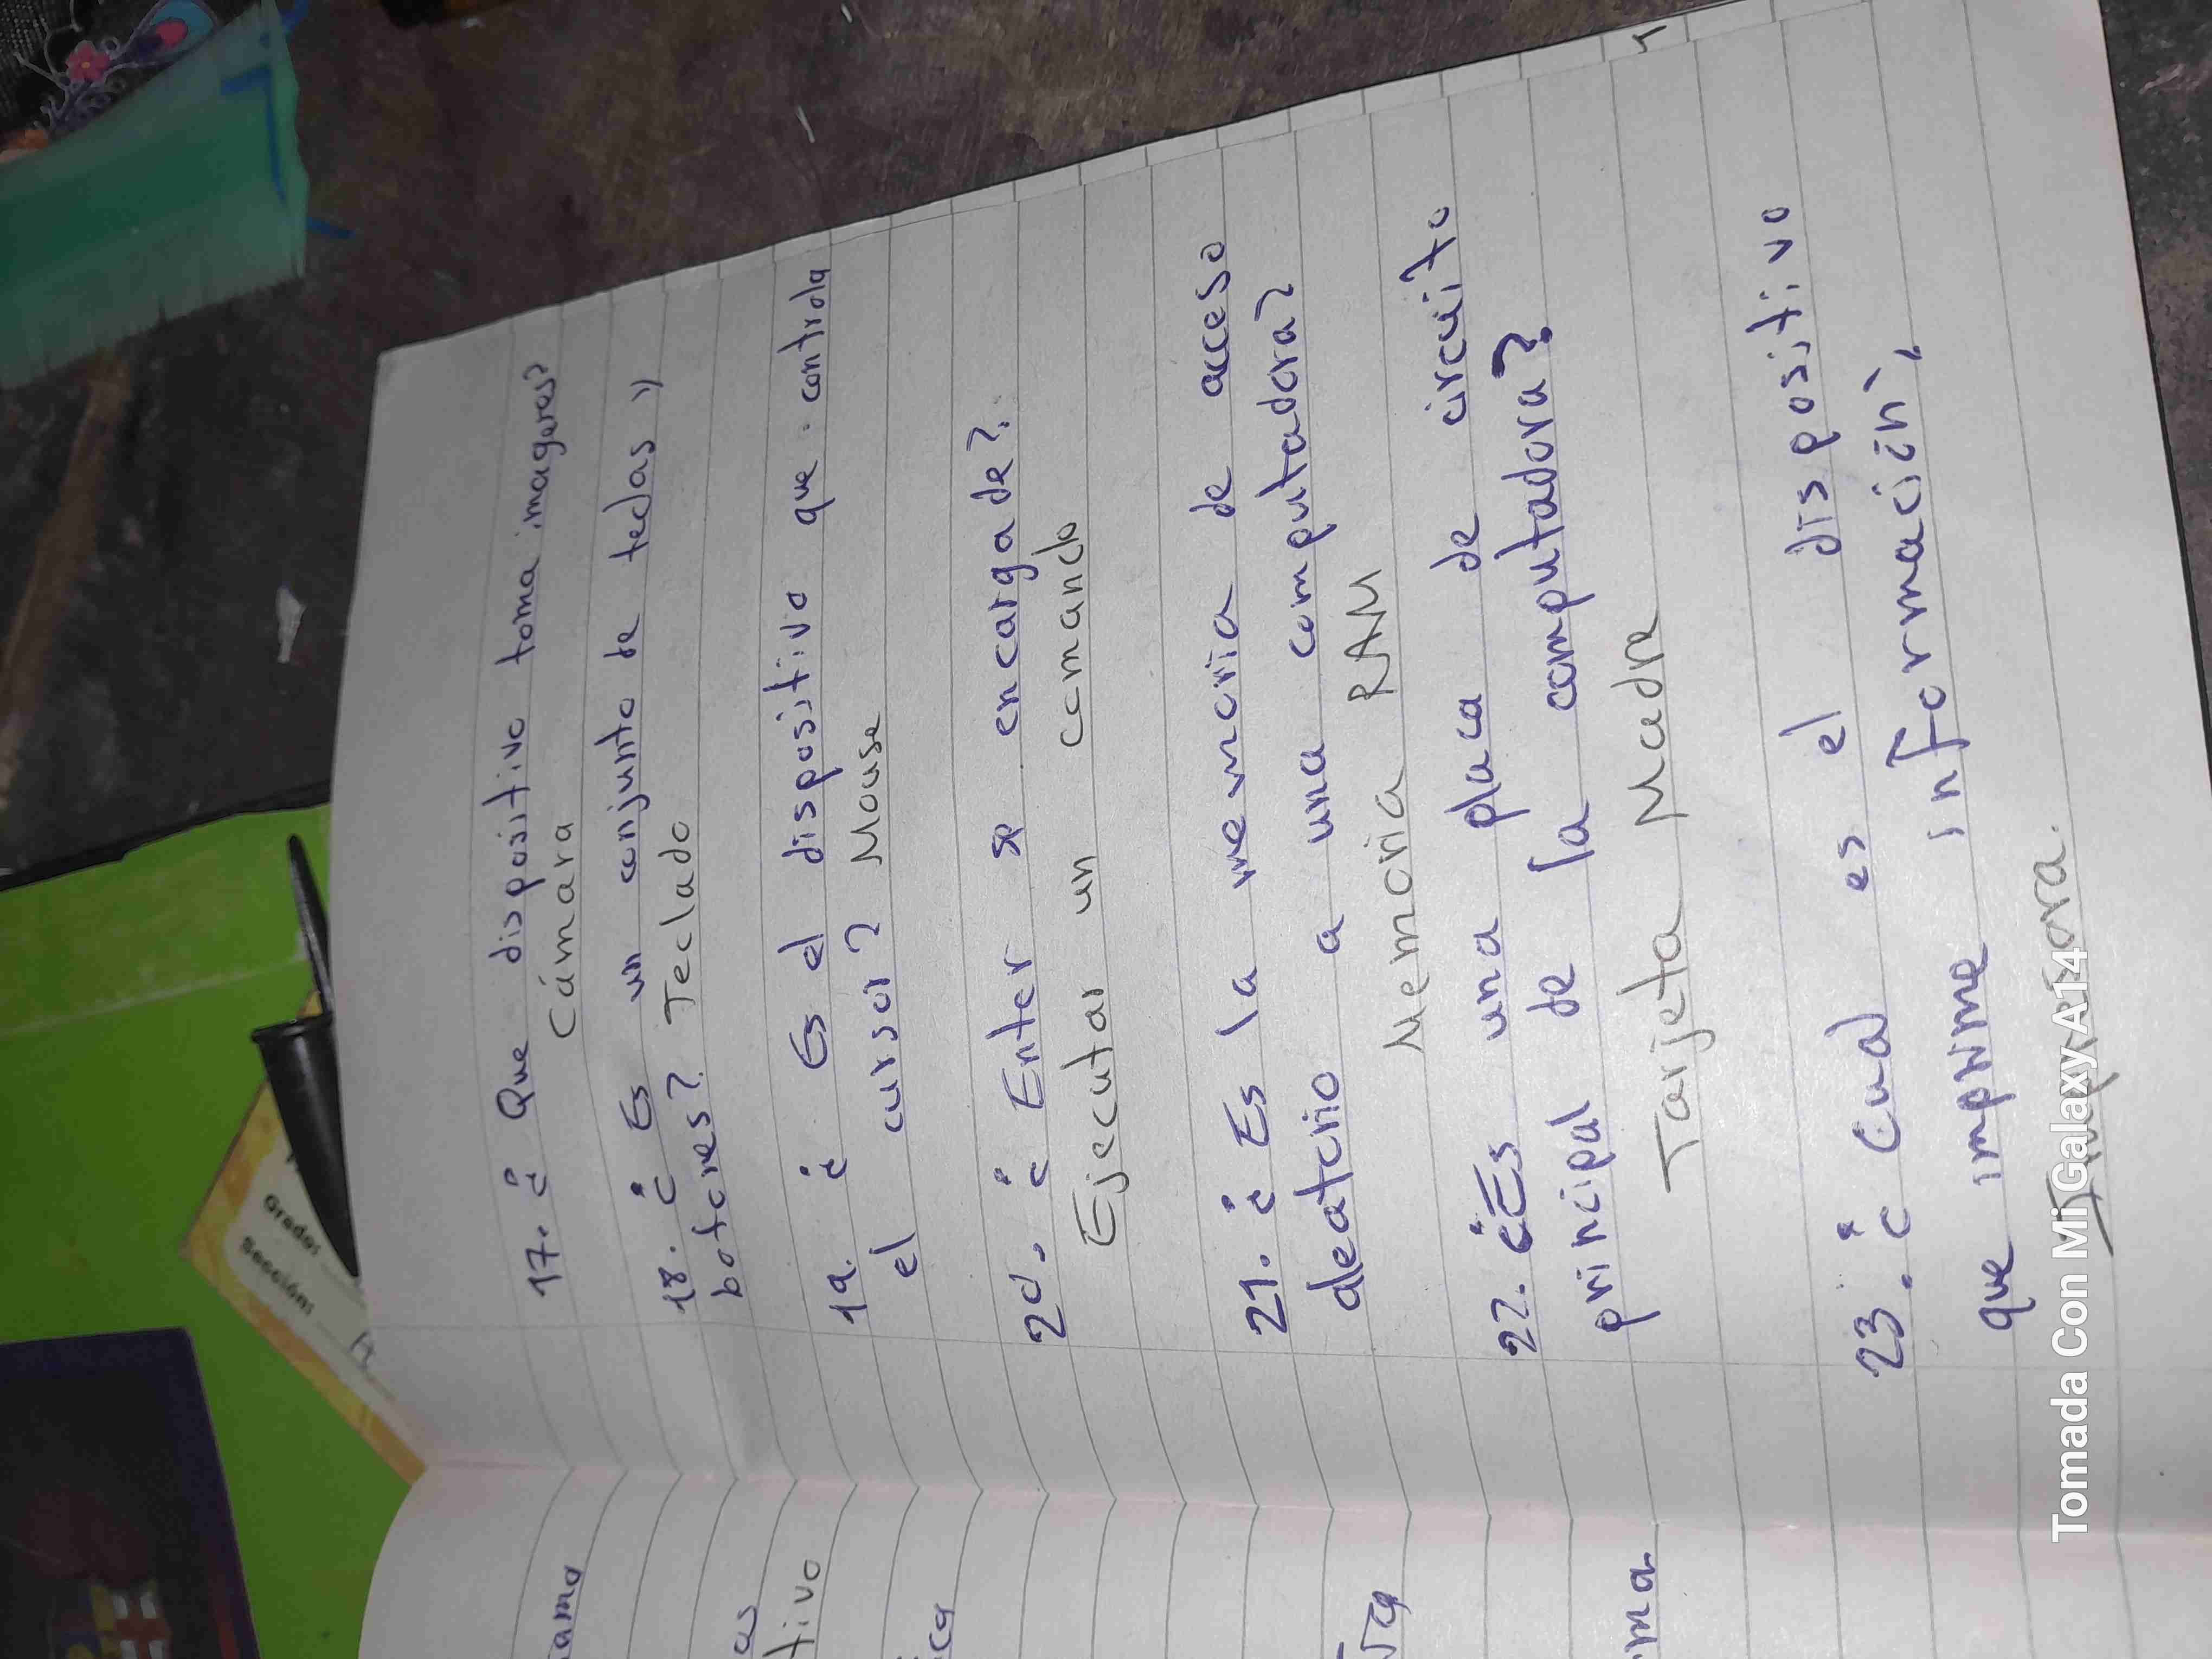 17. ¿ Que dispositivo toma imagenes?
Cámara
18. ¿ Es un conjunto de teclas y
botones? Teclado
19. ¿ Es el dispositivo que controla
el cursor? Mouse
20. ¿ Enter se encarga de?
Ejecutar un comando
21. ¿ Es la memoria de acceso
aleatorio a una computadora?
Memoria RAM
22. ¿Es una placa de circuito
principal de la computadora?
Tarjeta Madre
23. ¿ Cual es el dispositivo
que imprime información,
Impresora.
Grado:
Sección:
ama
as
tivo
ica
ma
Tomada Con Mi Galaxy A14